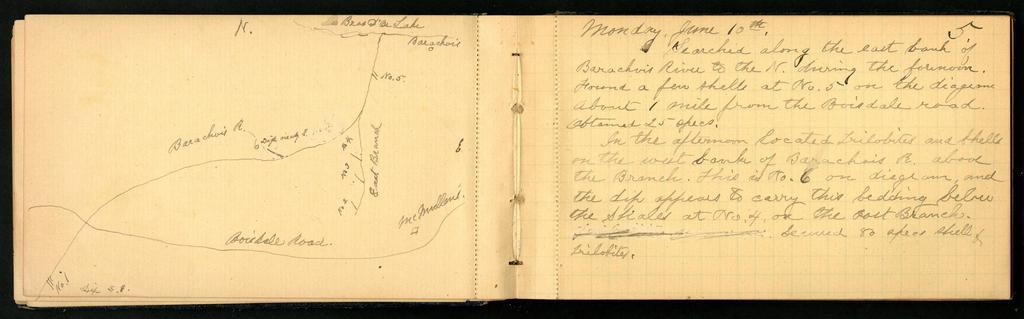 N.
Bras D'or Lake
Barachois
No. 5.
Barachois R.
Dip
East Branch
No 3
No 2
6
McMullens.
Boisdale Road.
No 1
Dip S.E.
5
Monday, June 10th.
Searched along the east bank of
Barachois River to the N. during the forenoon.
Found a few shells at No. 5 on the diagram
about 1 mile from the Boisdale road.
Obtained 25 specs.
In the afternoon located Trilobites and shells
on the west bank of Barachois R. above
the Branch. This is No. 6 on diagram, and
the dip appears to carry this bedding below
the shales at No. 4, on the East Branch.
Secured 80 specs shells &
Trilobites.